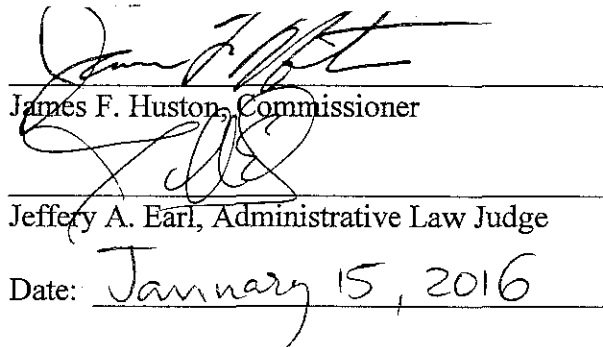 James F. Huston, Commissioner
Jeffery A. Earl, Administrative Law Judge
Date: January 15, 2016